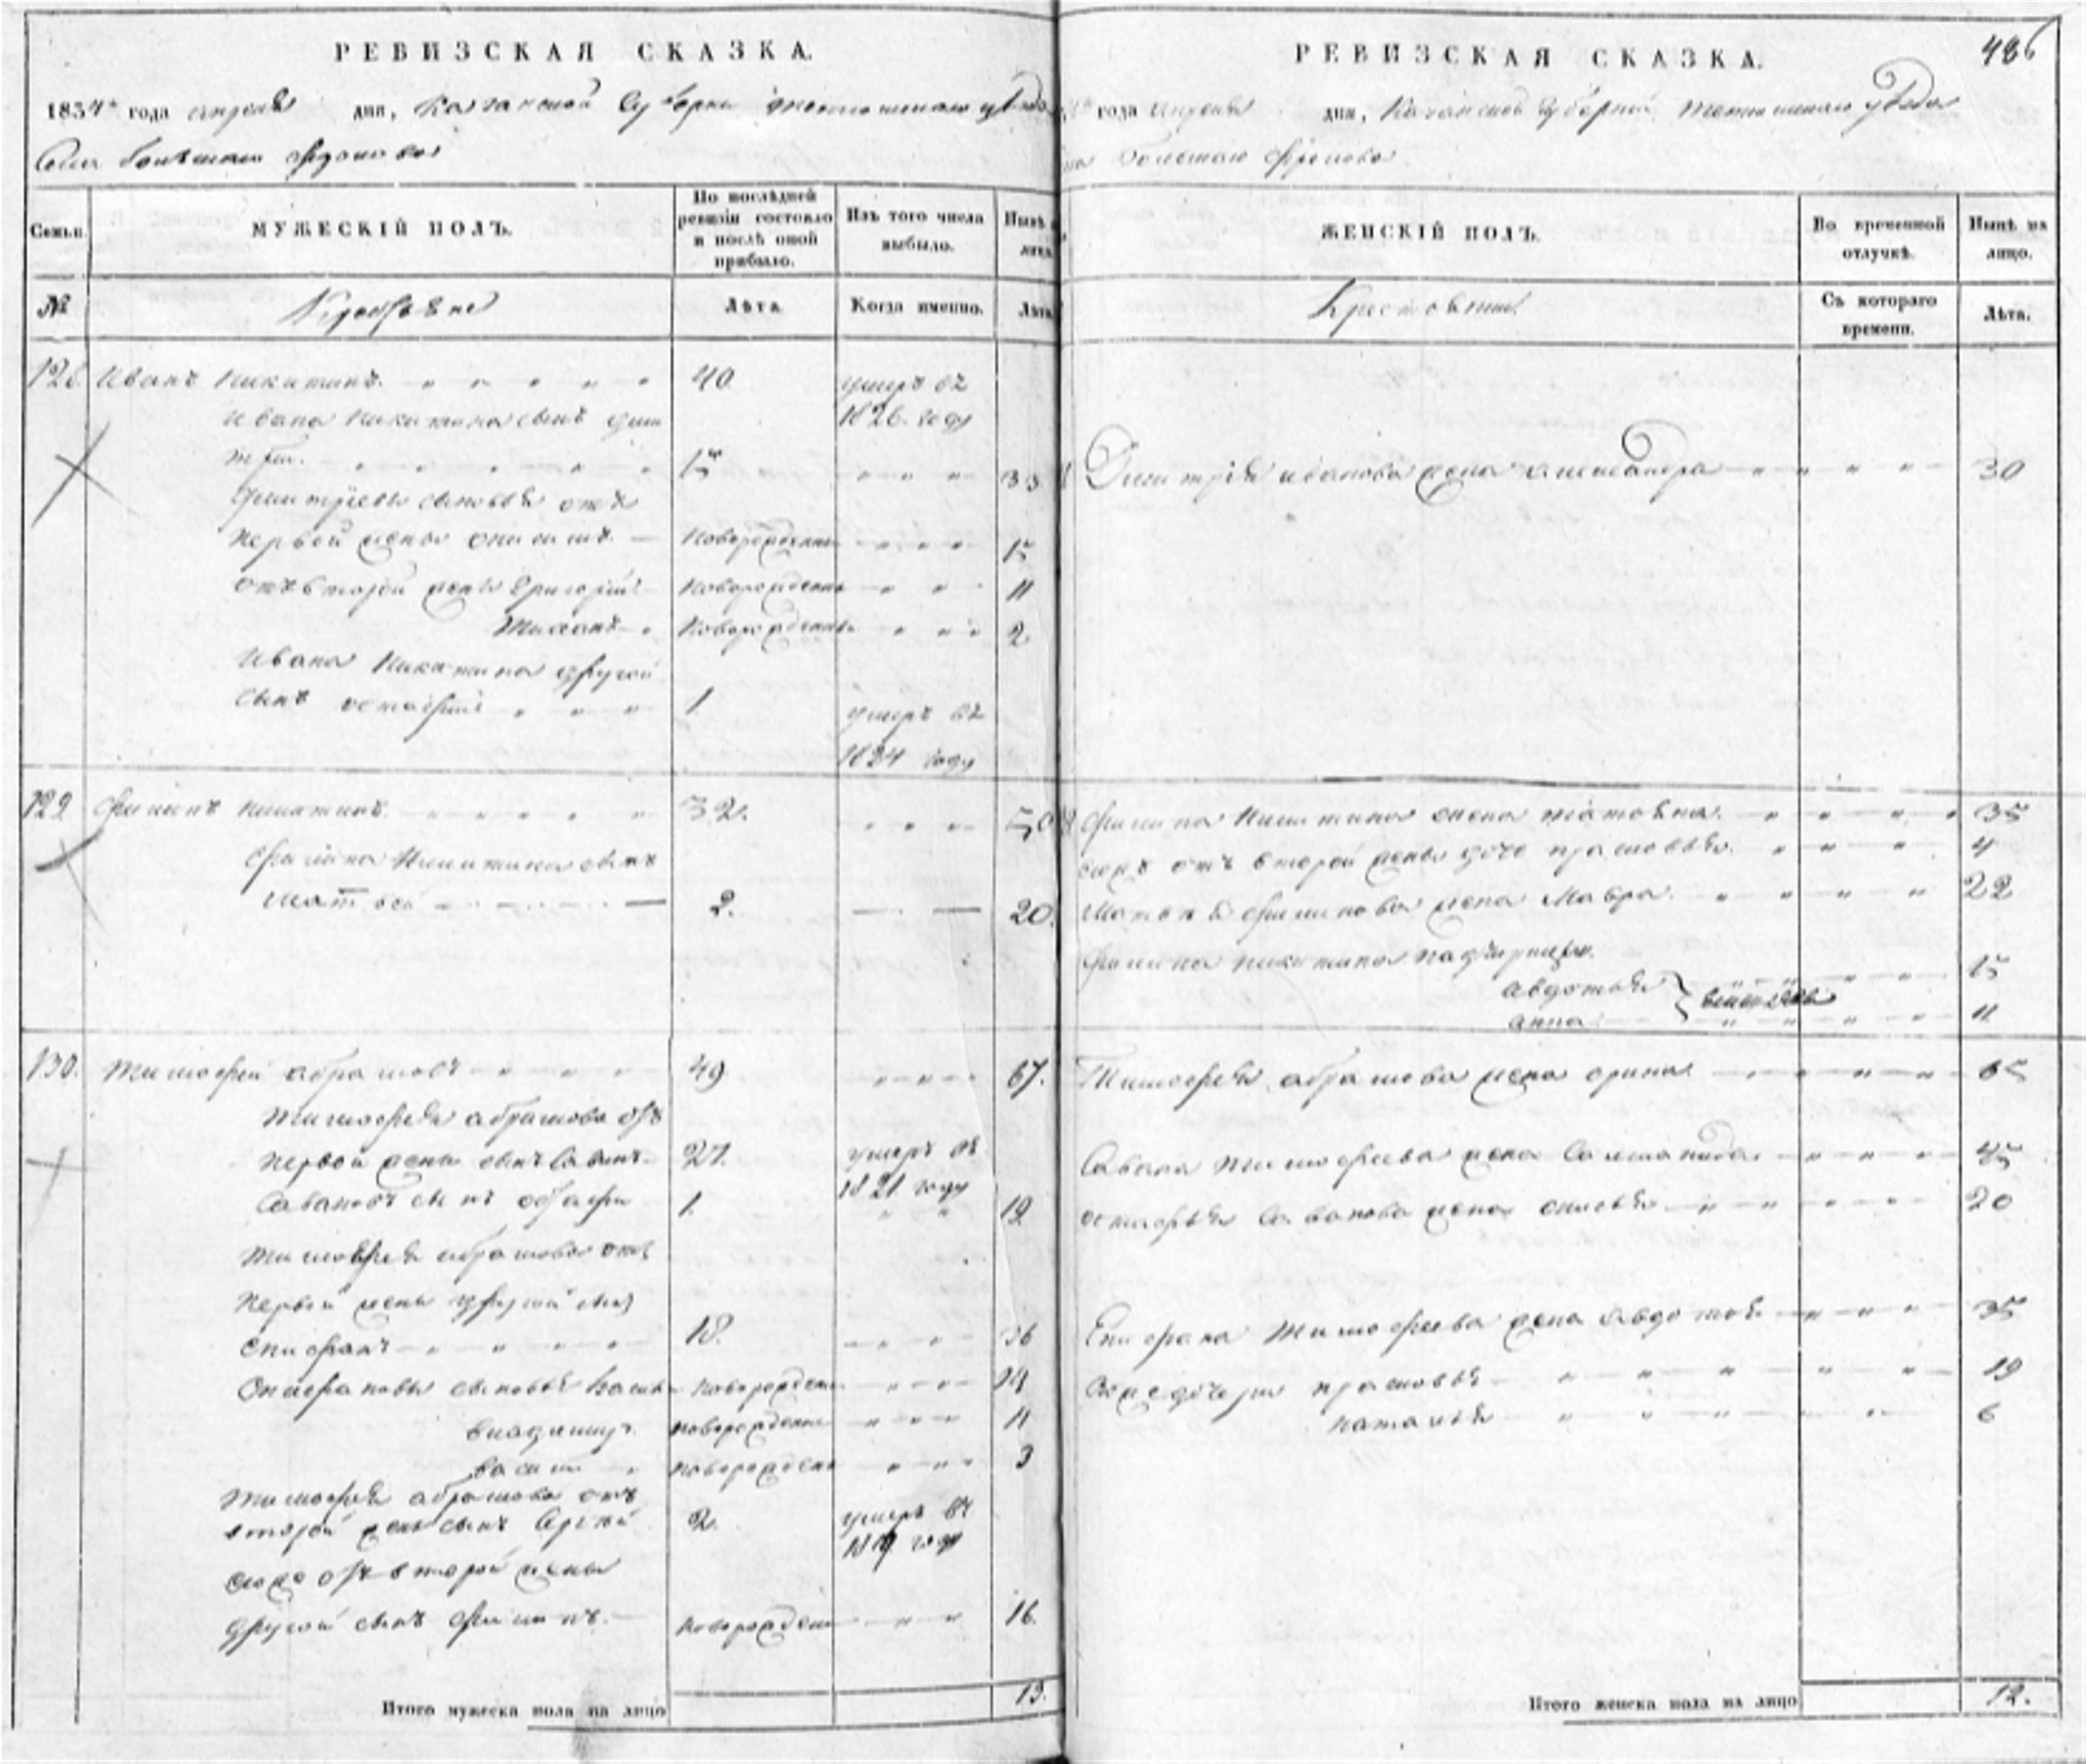 РЕВИЗСКАЯ СКАЗКА.
1834го года апреля дня, Казанской Губернии Тетюшскаго уезда
Села Большаго Фролова
Семьи
МУЖЕСКІЙ ПОЛЪ.
По послѣдней ревизіи состояло и послѣ оной прибыло.
Изъ того числа выбыло.
Нынѣ на лицо
№
Крестьяне
Лѣта
Когда именно.
Лѣта
128. Иванъ Никитинъ 40 умеръ въ
Ивана Никитина сынъ Дми 1826. году
трій 15 33
Дмитріевы сыновья отъ
первой жены Новорожденъ 15
отъ второй жены Григорій Новорожденъ 11
Новорожденъ 2
Ивана Никитина другой
сынъ 1 умеръ въ
1824 году
129 Филипъ Никитинъ 32. 50
Филипа Никитина сынъ
Матвей 2. 20.
130. Тимофей Абрамовъ 49 67.
Тимофея Абрамова отъ
первой жены сынъ Саванъ 27. умеръ въ
1821 году
Савановъ сынъ 1. 19
Тимофея Абрамова отъ
первой жены другой сынъ
Епифанъ 18. 36
Епифановы сыновья Новорожден 14
Владимир Новорожденъ 11
Василій Новорожденъ 3
Тимофея Абрамова отъ
второй жены сынъ Сергей 2. умеръ въ
году
отъ второй жены
другой сынъ Филипъ. Новорожден 16.
Итого мужеска пола на лицо 13.
РЕВИЗСКАЯ СКАЗКА.
486
года апреля дня, Казанской Губерніи Тетюшскаго уезда
Большаго Фролова
ЖЕНСКІЙ ПОЛЪ.
Во временной отлучкѣ.
Нынѣ на лицо.
Крестьянки
Съ котораго времени.
Лѣта.
Дмитрія Иванова жена Александра 30
Филипа Никитина жена Татьяна 35
отъ второй жены дочь Прасковья 4
Матвея Филипова жена Мавра 22
Филипа Никитина падчерицы
Авдотья 15
Анна 11
Тимофея Абрамова жена Орина 65
Савана Тимофеева жена Соломанида 45
Савановa жена 20
Епифана Тимофеева жена Авдотья 35
дочери Прасковья 19
Наталья 6
Итого женска пола на лицо 12.